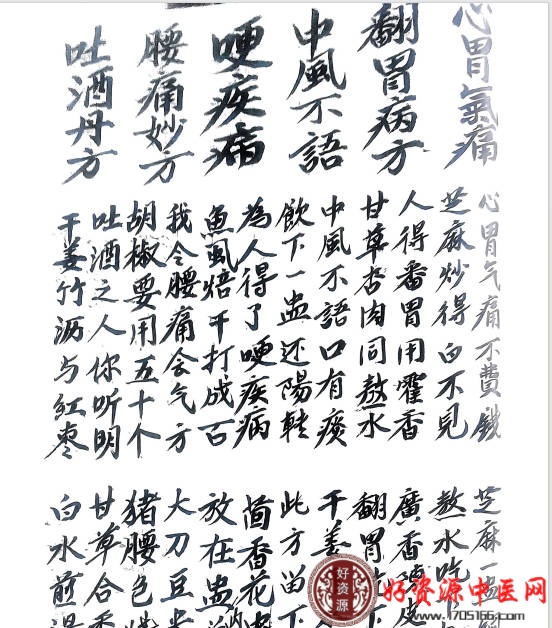 心胃氣痛
翻胃病方
中風不語
哽疾病
腰痛妙方
吐酒丹方
心胃气痛不費錢
芝麻炒得白不見
人得番胃用霍香
甘草杏肉同熬水
中風不語口有痰
飲下一盅还陽轉
為人得了哽疾病
魚風焙干打成百
我今腰痛会气方
胡椒要用五十个
吐酒之人你听明
干姜竹沥与紅枣
芝麻一盅
熬水吃
廣香皮
翻胃下
干姜
此方留下
茴香花
放在盅
大刀豆
猪腰色
甘草合香
白水煎
好资源
好资源中医网
www.1705166.com